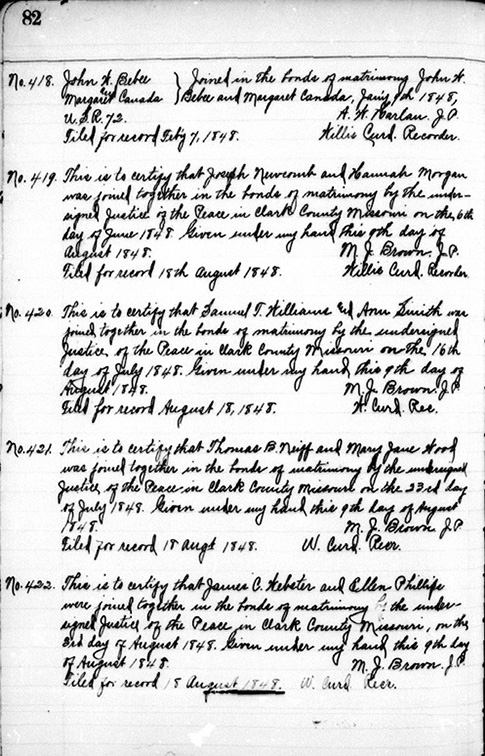 82
No. 418. John W. Bebee } Joined in the bonds of matrimony John W.
Margaret Canada } Bebee and Margaret Canada, Jany 9th 1848,
72. A. W. Harlan J.P.
Filed for record Feby 7, 1848. Willis Curd Recorder.
No. 419. This is to certify that Joseph Newcomb and Hannah Morgan
was joined together in the bonds of matrimony by the under-
signed Justice of the Peace in Clark County Missouri on the 6th
day of June 1848. Given under my hand this 9th day of
August 1848. M. J. Brown J.P.
Filed for record 18th August 1848. Willis Curd Recorder
No. 420. This is to certify that Samuel T. Williams Ed Ann Smith was
joined together in the bonds of matrimony by the undersigned
Justice of the Peace in Clark County Missouri on the 16th
day of July 1848. Given under my hand this 9th day of
August 1848. M. J. Brown J.P.
Filed for record August 18, 1848. W. Curd Rec.
No. 421. This is to certify that Thomas B. Neiff and Mary Jane Wood
was joined together in the bonds of matrimony by the undersigned
Justice of the Peace in Clark County Missouri on the 23rd day
of July 1848. Given under my hand this 9th day of August
1848. M. J. Brown J.P
Filed for record 18 Augt 1848. W. Curd Recr.
No. 422. This is to certify that James C. Webster and Ellen Phillips
were joined together in the bonds of matrimony by the under-
signed Justice of the Peace in Clark County Missouri, on the
3rd day of August 1848. Given under my hand this 9th day
of August 1848. M. J. Brown J.P.
Filed for record 18 August 1848. W. Curd Recr.